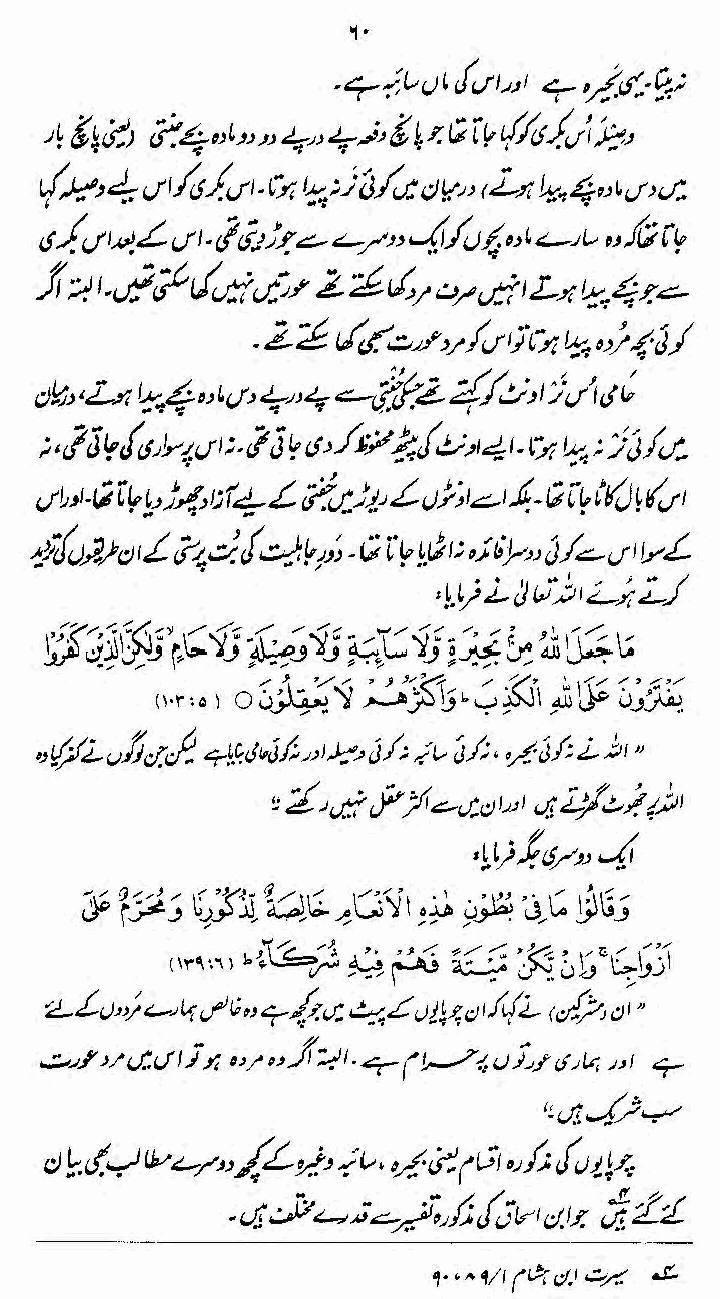 ۶۰
نہ پیتا۔ یہی بَحیرہ ہے اور اس کی ماں سائبہ ہے۔
وصیلَہ اُس بکری کو کہا جاتا تھا جو پانچ دفعہ پے در پے دو دو مادہ بچے جنتی (یعنی پانچ بار
میں دس مادہ بچے پیدا ہوتے) درمیان میں کوئی نَر نہ پیدا ہوتا۔ اس بکری کو اس لیے وصیلہ کہا
جاتا تھا کہ وہ سارے مادہ بچوں کو ایک دوسرے سے جوڑ دیتی تھی۔ اس کے بعد اس بکری
سے جو بچے پیدا ہوتے انہیں صرف مرد کھا سکتے تھے عورتیں نہیں کھا سکتی تھیں۔ البتہ اگر
کوئی بچہ مُردہ پیدا ہوتا تو اس کو مرد عورت سبھی کھا سکتے تھے۔
حَامی اُس نَر اونٹ کو کہتے تھے جسکی جُفتی سے پے در پے دس مادہ بچے پیدا ہوتے، درمیان
میں کوئی نَر نہ پیدا ہوتا۔ ایسے اونٹ کی پیٹھ محفوظ کر دی جاتی تھی۔ نہ اس پر سواری کی جاتی تھی، نہ
اس کا بال کاٹا جاتا تھا۔ بلکہ اسے اونٹوں کے ریوڑ میں جُفتی کے لیے آزاد چھوڑ دیا جاتا تھا۔ اور اس
کے سوا اس سے کوئی دوسرا فائدہ نہ اٹھایا جاتا تھا۔ دَورِ جاہلیت کی بُت پرستی کے ان طریقوں کی تردید
کرتے ہُوئے اللہ تعالیٰ نے فرمایا:
مَا جَعَلَ اللّٰهُ مِنْۢ بَحِيْرَةٍ وَّلَا سَآئِبَةٍ وَّلَا وَصِيْلَةٍ وَّلَا حَامٍ ۙ وَّلٰكِنَّ الَّذِيْنَ كَفَرُوْا
يَفْتَرُوْنَ عَلَى اللّٰهِ الْكَذِبَ ؕ وَاَكْثَرُهُمْ لَا يَعْقِلُوْنَ ○ (۵ : ۱۰۳)
” اللہ نے نہ کوئی بحیرہ، نہ کوئی سائبہ نہ کوئی وصیلہ اور نہ کوئی حامی بنایا ہے لیکن جن لوگوں نے کفر کیا وہ
اللہ پر جھُوٹ گھڑتے ہیں اور ان میں سے اکثر عقل نہیں رکھتے ۔“
ایک دوسری جگہ فرمایا:
وَقَالُوْا مَا فِیْ بُطُوْنِ هٰذِهِ الْاَنْعَامِ خَالِصَةٌ لِّذُكُوْرِنَا وَمُحَرَّمٌ عَلٰٓى
اَزْوَاجِنَا ۚ وَاِنْ يَّكُنْ مَّيْتَةً فَهُمْ فِيْهِ شُرَكَآءُ ؕ (۶ : ۱۳۹)
” ان (مشرکین) نے کہا کہ ان چوپایوں کے پیٹ میں جو کچھ ہے وہ خالص ہمارے مَردوں کے لئے
ہے اور ہماری عورتوں پر حرام ہے۔ البتہ اگر وہ مردہ ہو تو اس میں مرد عورت
سب شریک ہیں ۔“
چوپایوں کی مذکورہ اقسام یعنی بحیرہ، سائبہ وغیرہ کے کچھ دوسرے مطالب بھی بیان
کئے گئے ہیں ۴؎ جو ابن اسحاق کی مذکورہ تفسیر سے قدرے مختلف ہیں۔
۴؎ سیرت ابن ہشام ۱/۸۹، ۹۰